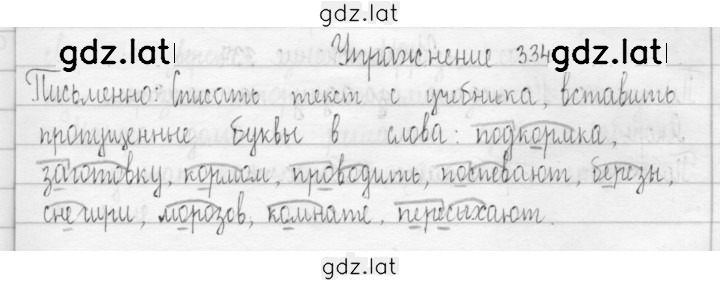 gdz.lat
gdz.lat gdz.lat
Упражнение 334
Письменно: Списать текст с учебника, вставить
пропущенные буквы в слова: подкормка,
заготовку, кормом, проводить, поспевают, березы,
снегири, морозов, комнате, пересыхают.
gdz.lat